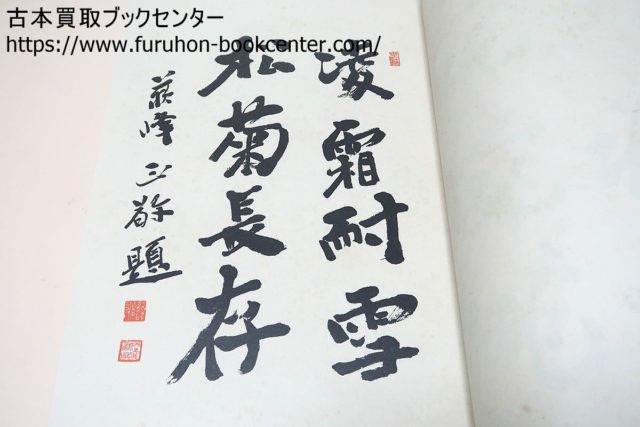 古本買取ブックセンター
https://www.furuhon-bookcenter.com/
凌霜耐雪
松菊長存
蘇峰正敬題